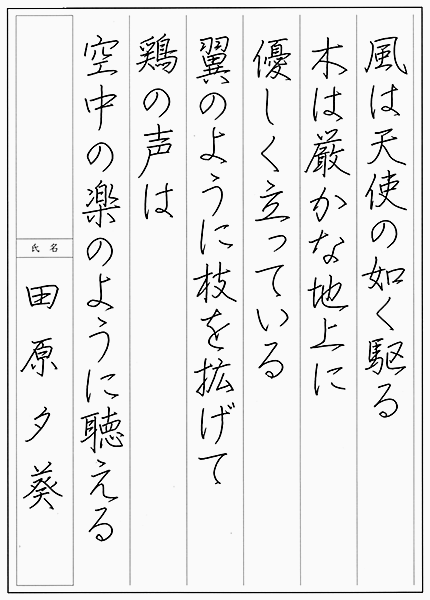 風は天使の如く駆る
木は厳かな地上に
優しく立っている
翼のように枝を拡げて
鶏の声は
空中の楽のように聴える
氏名
田原夕葵